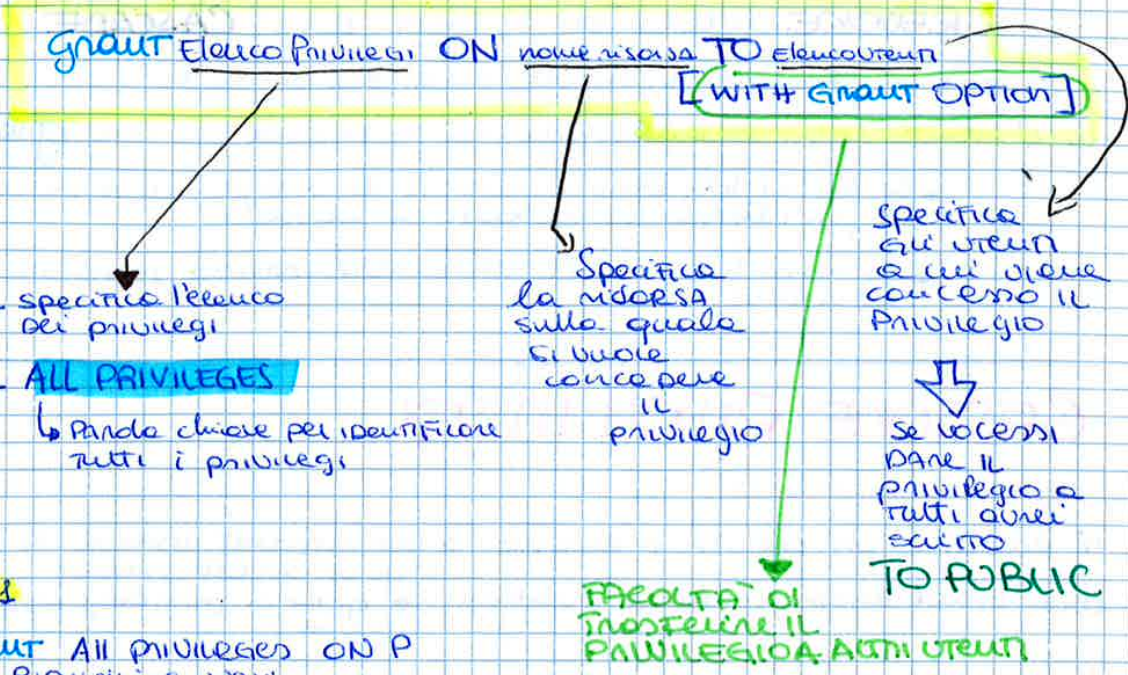 GRANT Elenco Privilegi ON nome risorsa TO Elenco utenti
[WITH GRANT OPTION]
- specifica l'elenco
dei privilegi
- ALL PRIVILEGES
↳ Parola chiave per identificare
tutti i privilegi
Specifica
la risorsa
sulla quale
si vuole
concedere
il
privilegio
specifica
gli utenti
a cui viene
concesso il
privilegio
se volessi
dare il
privilegio a
tutti avrei
scritto
TO PUBLIC
FACOLTA' DI
trasferire il
PRIVILEGIO A ALTRI UTENTI
1
NT All privileges ON P